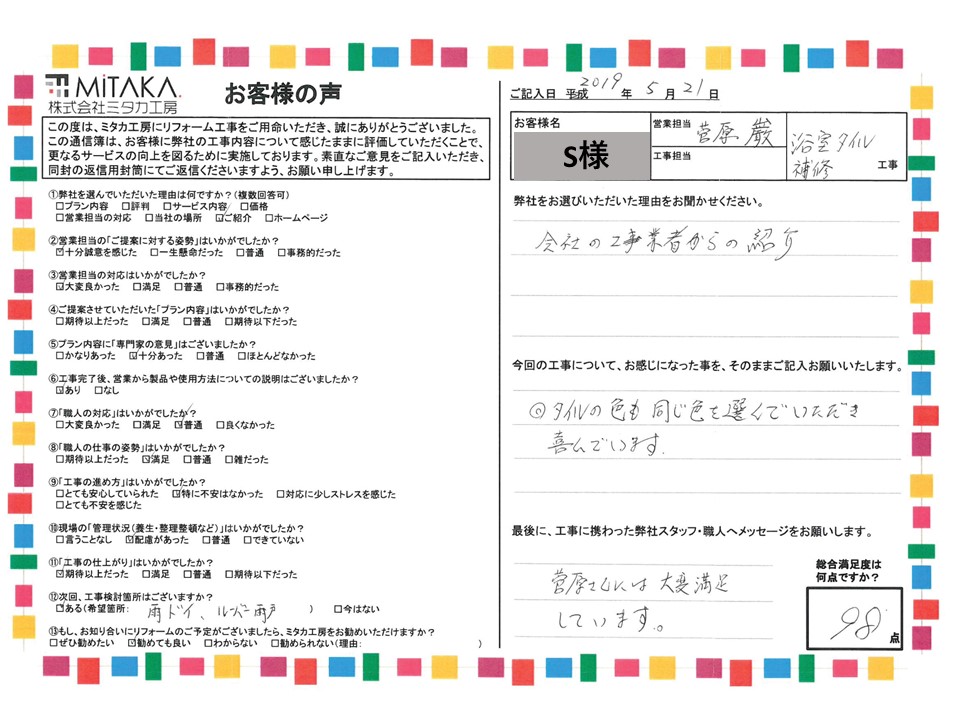 MiTAKA.
株式会社ミタカ工房
お客様の声
この度は、ミタカ工房にリフォーム工事をご用命いただき、誠にありがとうございました。
この通信簿は、お客様に弊社の工事内容について感じたままに評価していただくことで、
更なるサービスの向上を図るために実施しております。素直なご意見をご記入いただき、
同封の返信用封筒にてご返信くださいますよう、お願い申し上げます。
①弊社を選んでいただいた理由は何ですか？(複数回答可)
□プラン内容 □評判 □サービス内容 □価格
□営業担当の対応 □当社の場所 ☑ご紹介 □ホームページ
②営業担当の「ご提案に対する姿勢」はいかがでしたか？
☑十分誠意を感じた □一生懸命だった □普通 □事務的だった
③営業担当の対応はいかがでしたか？
☑大変良かった □満足 □普通 □事務的だった
④ご提案させていただいた「プラン内容」はいかがでしたか？
□期待以上だった □満足 □普通 □期待以下だった
⑤プラン内容に「専門家の意見」はございましたか？
□かなりあった ☑十分あった □普通 □ほとんどなかった
⑥工事完了後、営業から製品や使用方法についての説明はございましたか？
☑あり □なし
⑦「職人の対応」はいかがでしたか？
□大変良かった □満足 ☑普通 □良くなかった
⑧「職人の仕事の姿勢」はいかがでしたか？
□期待以上だった ☑満足 □普通 □雑だった
⑨「工事の進め方」はいかがでしたか？
□とても安心していられた ☑特に不安はなかった □対応に少しストレスを感じた
□とても不安を感じた
⑩現場の「管理状況(養生・整理整頓など)」はいかがでしたか？
□言うことなし ☑配慮があった □普通 □できていない
⑪「工事の仕上がり」はいかがでしたか？
☑期待以上だった □満足 □普通 □期待以下だった
⑫次回、工事検討箇所はございますか？
☑ある(希望箇所: 雨ドイ、ルーバー雨戸 ) □今はない
⑬もし、お知り合いにリフォームのご予定がございましたら、ミタカ工房をお勧めいただけますか？
□ぜひ勧めたい ☑勧めても良い □わからない □勧められない(理由: )
ご記入日 平成 2019 年 5 月 21 日
お客様名
S様
営業担当 菅原 巌
工事担当
浴室タイル
補修 工事
弊社をお選びいただいた理由をお聞かせください。
会社の工事業者からの紹介
今回の工事について、お感じになった事を、そのままご記入お願いいたします。
◎タイルの色も同じ色を選んでいただき
喜んでいます.
最後に、工事に携わった弊社スタッフ・職人へメッセージをお願いします。
菅原さんには大変満足
しています。
総合満足度は
何点ですか？
98 点